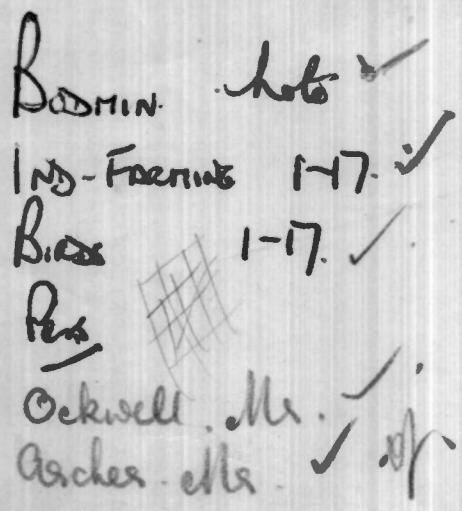 BODMIN. hots ✓
IND-FARMING 1-17. ✓
BIRDS 1-17. ✓
Ockwell. Mr. ✓
Archer. Mr. ✓